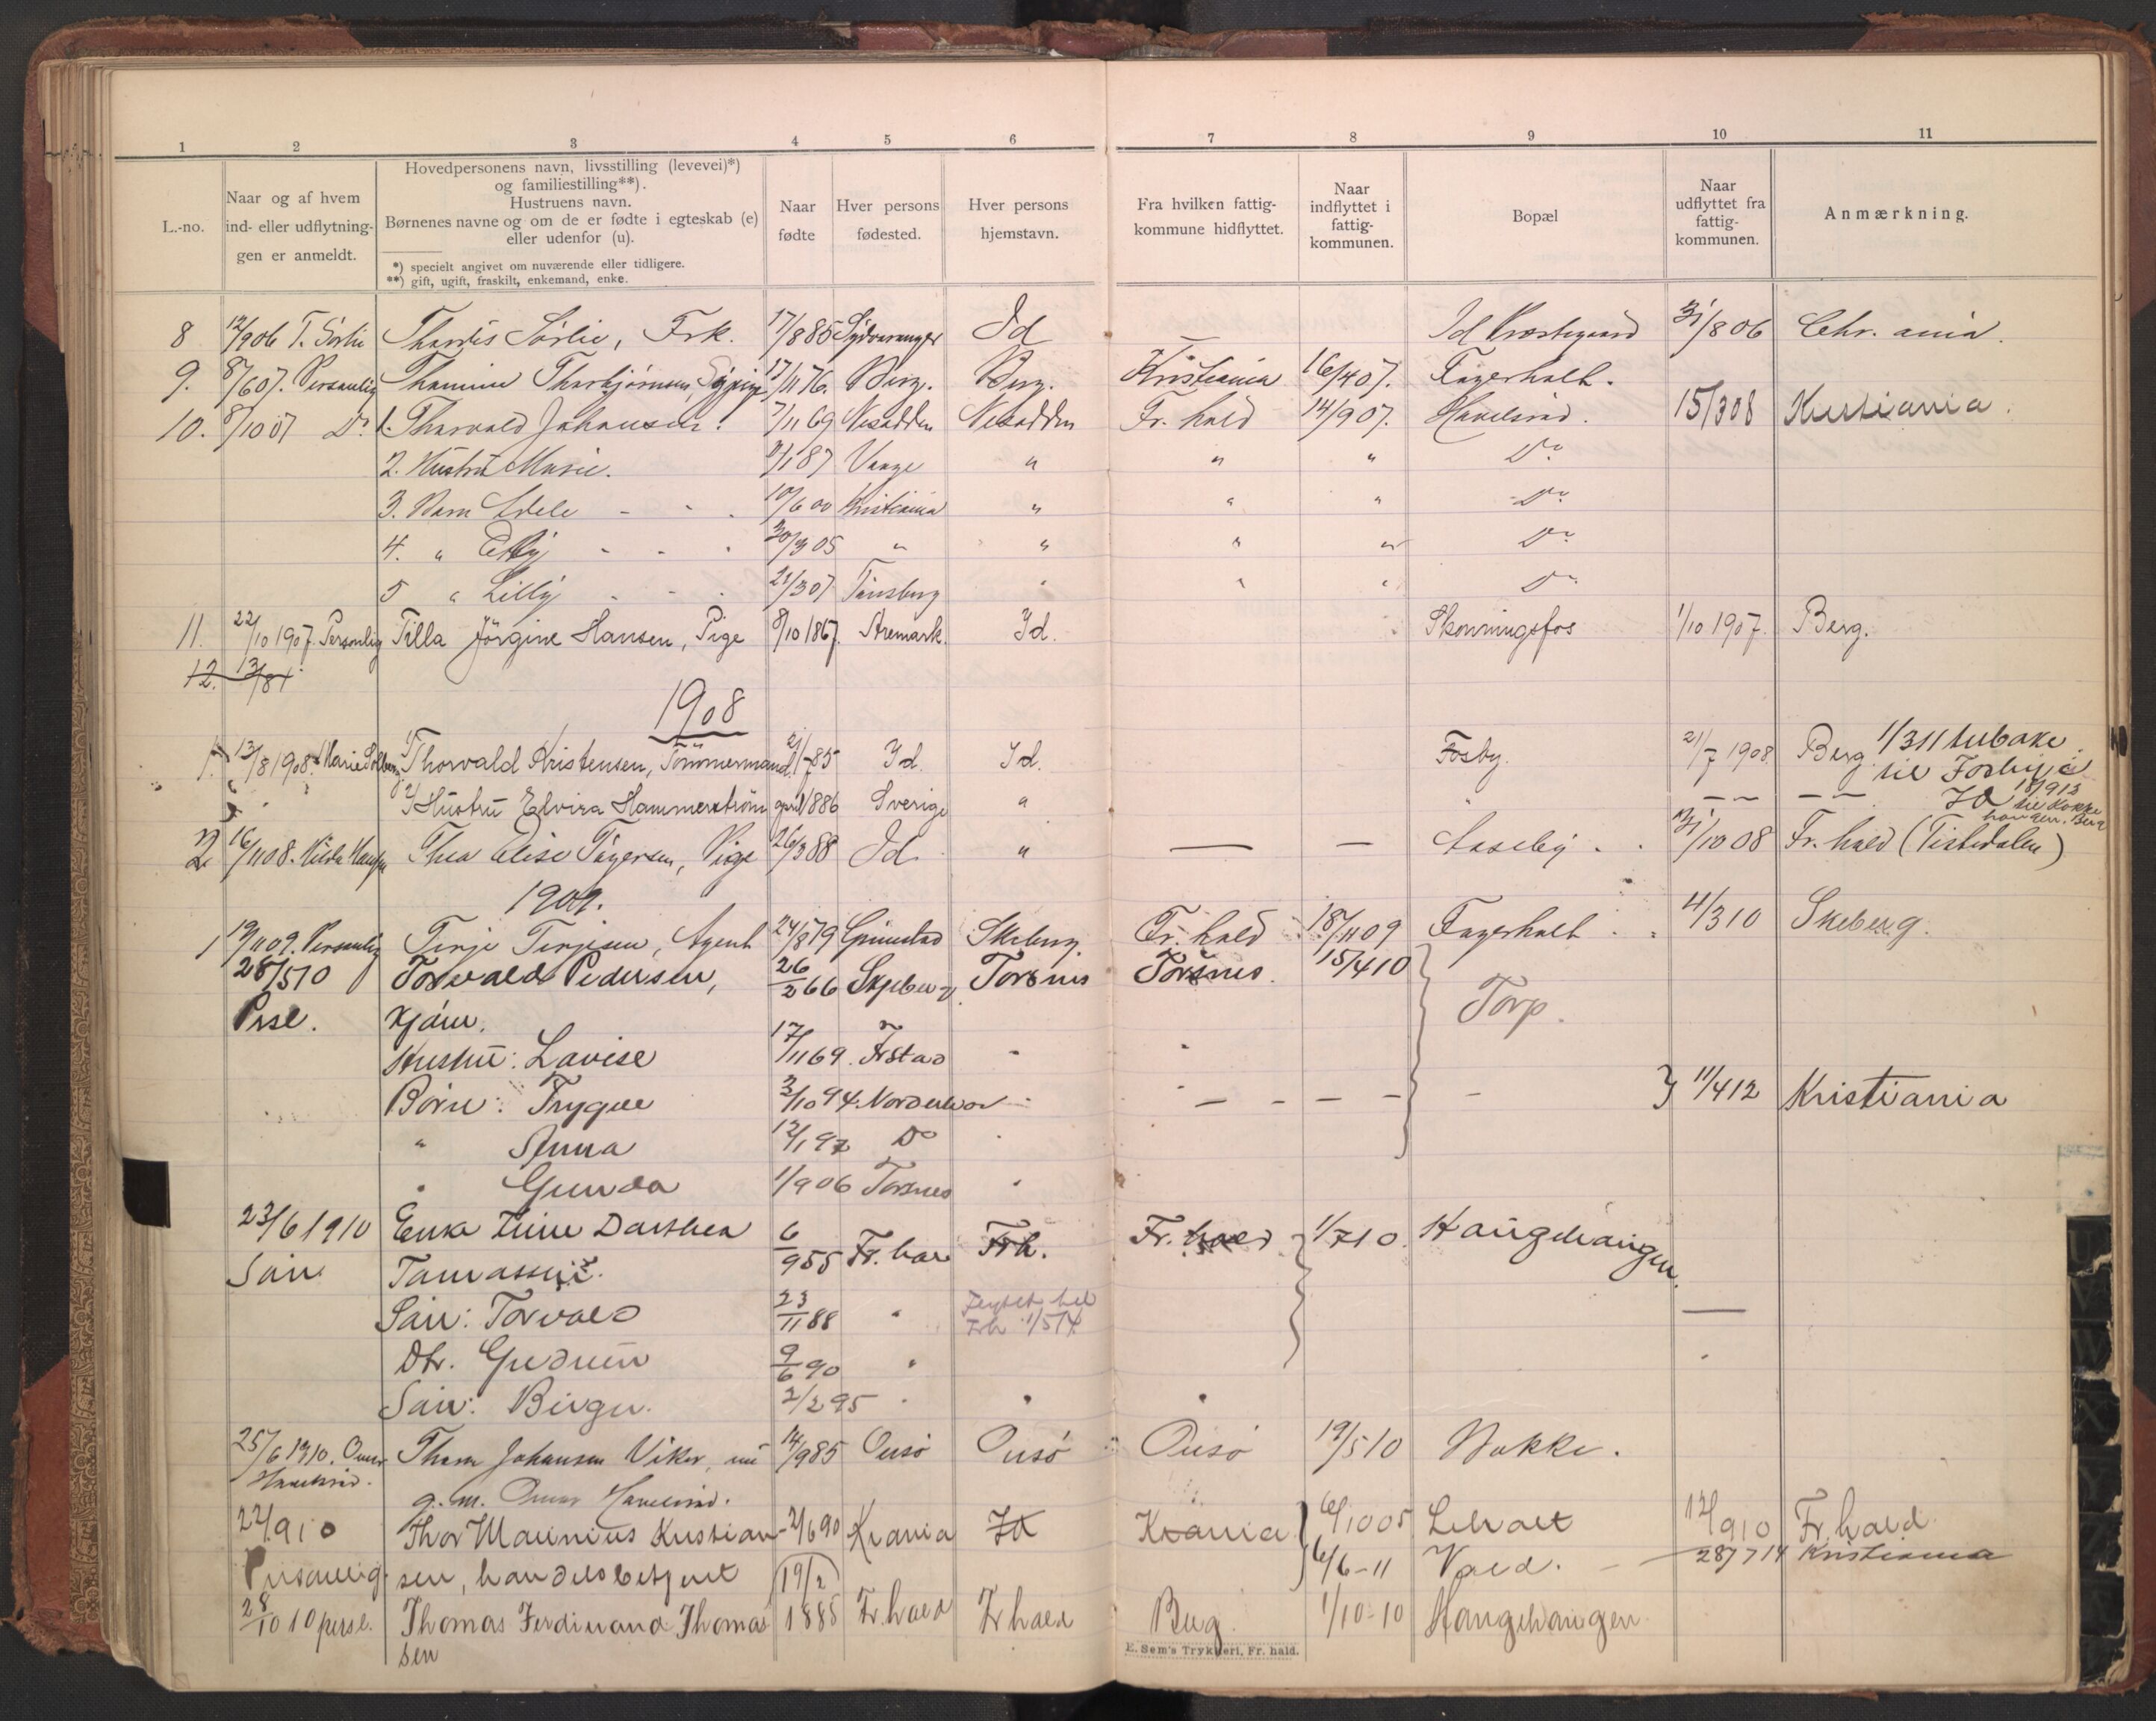 1 2 3 4 5 6 7 8 9 10 11
L.-no.
Naar og af hvem
ind- eller udflytnin-
gen er anmeldt.
Hovedpersonens navn, livsstilling (levevei)*)
og familiestilling**).
Hustruens navn.
Børnenes navne og om de er fødte i egteskab (e)
eller udenfor (u).
*) specielt angivet om nuværende eller tidligere.
**) gift, ugift, fraskilt, enkemand, enke.
Naar
fødte
Hver persons
fødested.
Hver persons
hjemstavn.
Fra hvilken fattig-
kommune hidflyttet.
Naar
indflyttet i
fattig-
kommunen.
Bopæl
Naar
udflyttet fra
fattig-
kommunen.
Anmærkning.
8 12/906 T. Sörlie Thordis Sörlie, Frk. 17/885 Sydvaranger Id — Id Præstegaard 31/806 Chr.ania.
9. 8/607. Personlig Thomine Thorbjörnsen, 17/1176. Berg. Berg. Kristiania 16/407. Fagerholt.
10. 8/1007 Do 1. Thorvald Johansen. 7/1169 Nesodden Nesodden Fr.hald 14/907. Havelsrød. 15/308 Kristiania.
2. Hustru Marie. 7/187 Vaage " " " Do
3. Barn Adele - - 10/600 Kristiania " " " Do
4. " Elly - - - 30/305 " " " " Do
5 " Lilly - - 21/307 Tönsberg " " " Do
11. 22/10 1907. Personlig Tilla Jörgine Hansen, Pige 8/10 1867. Aremark. Id. Skonningsfos 1/10 1907. Berg.
12. 13/81
1908
1. 13/8 1908. Marie Solberg 1) Thorvald Kristensen, Tömmermand 21/785 Id. Id. Fosby. 21/7 1908 Berg. 1/311 tilbake
til Fosby i
Id
" " 2) Hustru Elvira Hammerström april 1886 Sverige " " — — — — 18/913 til Kokke
hougen. Berg
2 16/1108. Hilda Thea Elise Tögersen, Pige 26/388 Id " — — Aaseby. 31/1008 Fr.hald (Tistedalen)
1909.
1 19/1109. Personlig Terje Terjesen, Agent 24/879 Grimstad Skeberg Fr.hald 18/1109 Fagerholt. 4/310 Skeberg.
28/510 Torvald Pedersen, 26/266 Skjeberg Torsnes Torsnes. 15/410
Psl. Kjörer. Torp.
Hustru: Lovise 17/1169. Frstad " "
Börn: Trygve 3/1094. Norderhov " — - — — - 11/412 Kristiania
" Anna 12/197 Do "
" Gunda 1/906 Torsnes "
23/6 1910 Enke Line Dorthea 6/955 Fr.hald Frh. Fr.hald 1/710. Haugehaugen.
Sön Tomassen.
Sön: Torvald 23/1188 " Flyttet til
Frh 1/514 —
Dtr. Gudrun 9/690 "
Sön: Birger. 2/295 " " "
25/6 1910. Omar Thora Johansen Viker, nu 14/985 Onsö Onsö Onsö 19/510 Bakke.
Havelsrød. g. m. Omar Havelsrød.
22/910 Thor Maurinius Kristian- 2/690 Krania Id Krania 6/1005 Liholt 12/910 Fr.hald
Personlig sen, handelsbetjent 6/6-11 Vold. — 28/714 Kristiania
28/10 10 persl. Thomas Ferdinand Thomas 19/2 1885 Fr.hald Frhald Berg 1/10-10 Haugehaugen
sen
E. Sem's Trykkeri, Fr. hald.